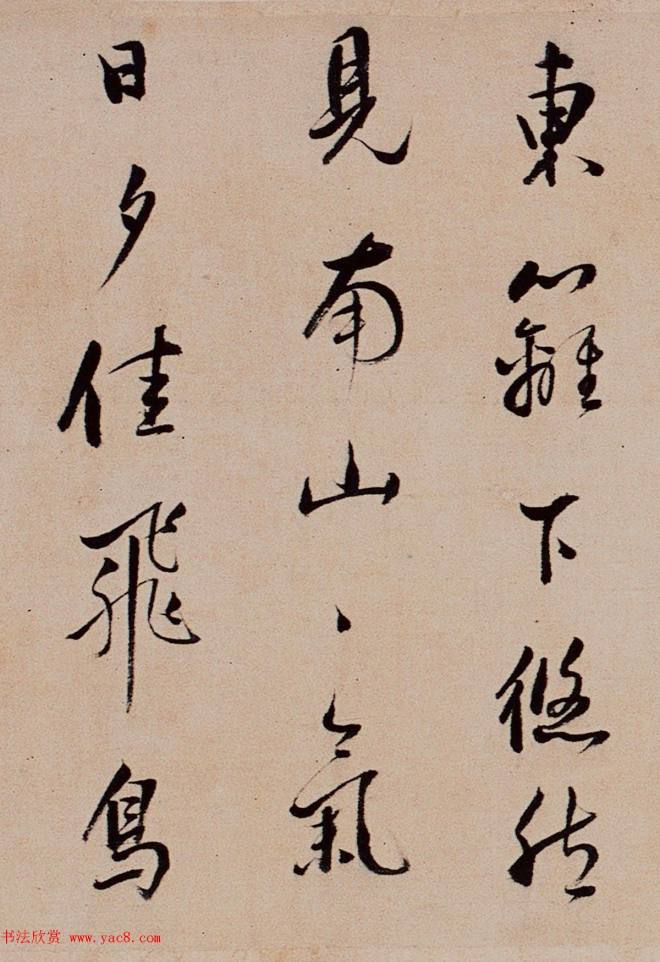 東籬下悠然
見南山〻氣
日夕佳飛鳥
书法欣赏 www.yac8.com